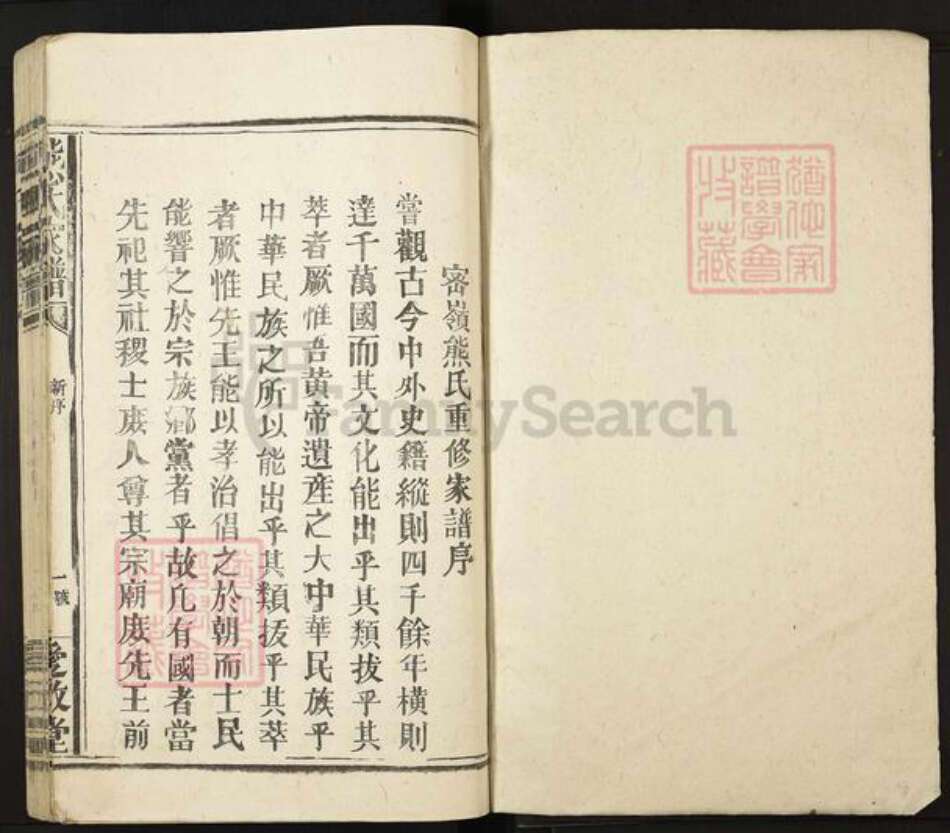 密嶺熊氏重修家譜序
嘗觀古今中外史籍縱則四千餘年橫則
達千萬國而其文化能出乎其類拔乎其
萃者厥惟吾黃帝遺産之大中華民族乎
中華民族之所以能出乎其類拔乎其萃
者厥惟先王能以孝治倡之於朝而士民
能響之於宗族鄉黨者乎故凡有國者當
先祀其社稷士庶人尊其宗廟庶先王前
熊氏家譜
新序
一號
愛敬堂
譜學會
收藏
FamilySearch